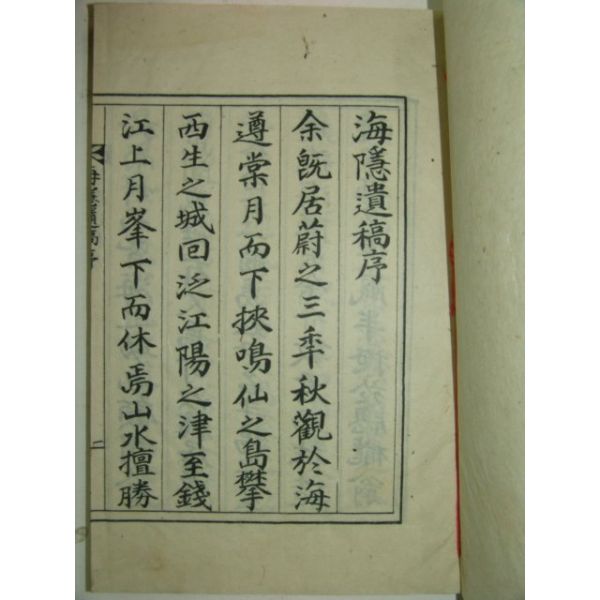 海隱遺稿序
余旣居蔚之三秊秋觀於海
遵棠月而下挾鳴仙之島攀
西生之城回泛江陽之津至錢
江上月峯下而休焉山水擅勝
海隱遺稿序
二